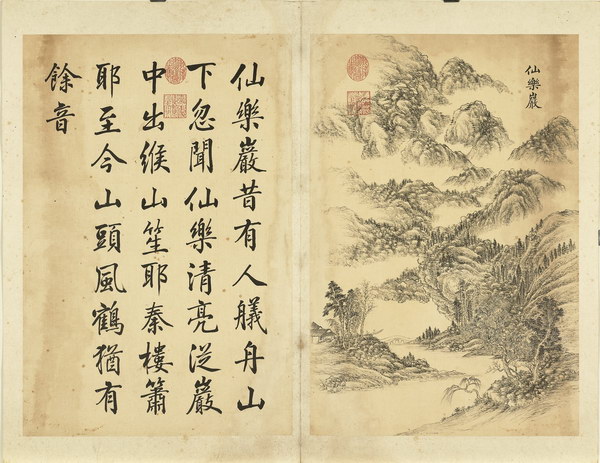 仙樂巖
仙樂巖昔有人艤舟山
下忽聞仙樂清亮從巖
中出緱山笙耶秦樓簫
耶至今山頭風鶴猶有
餘音